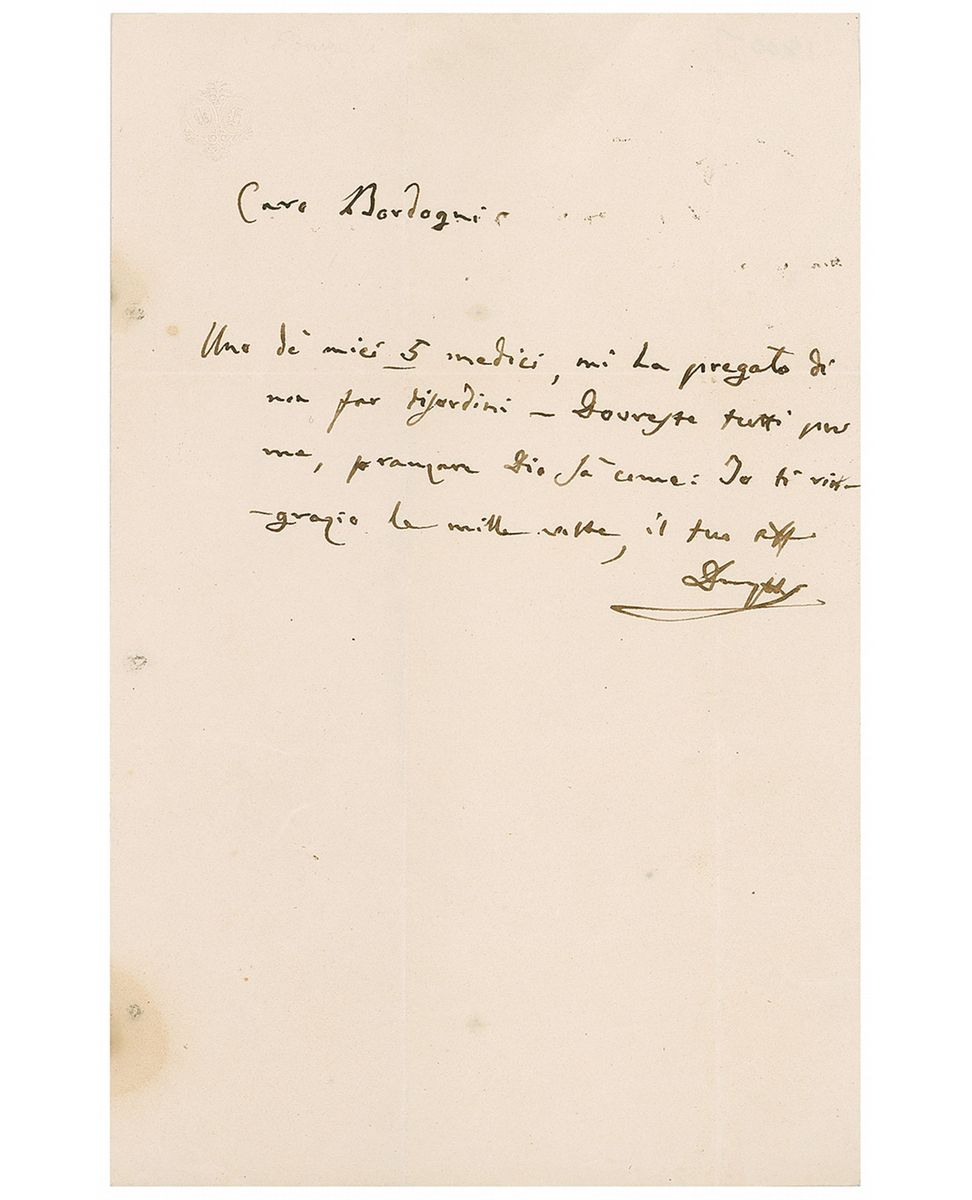 Caro Bordogni
Uno de' miei 5 medici, mi ha pregato di
non far disordini – Dovreste tutti per
me, pranzare Dio sà come: Io ti rin-
-grazio le mille volte, il tuo aff